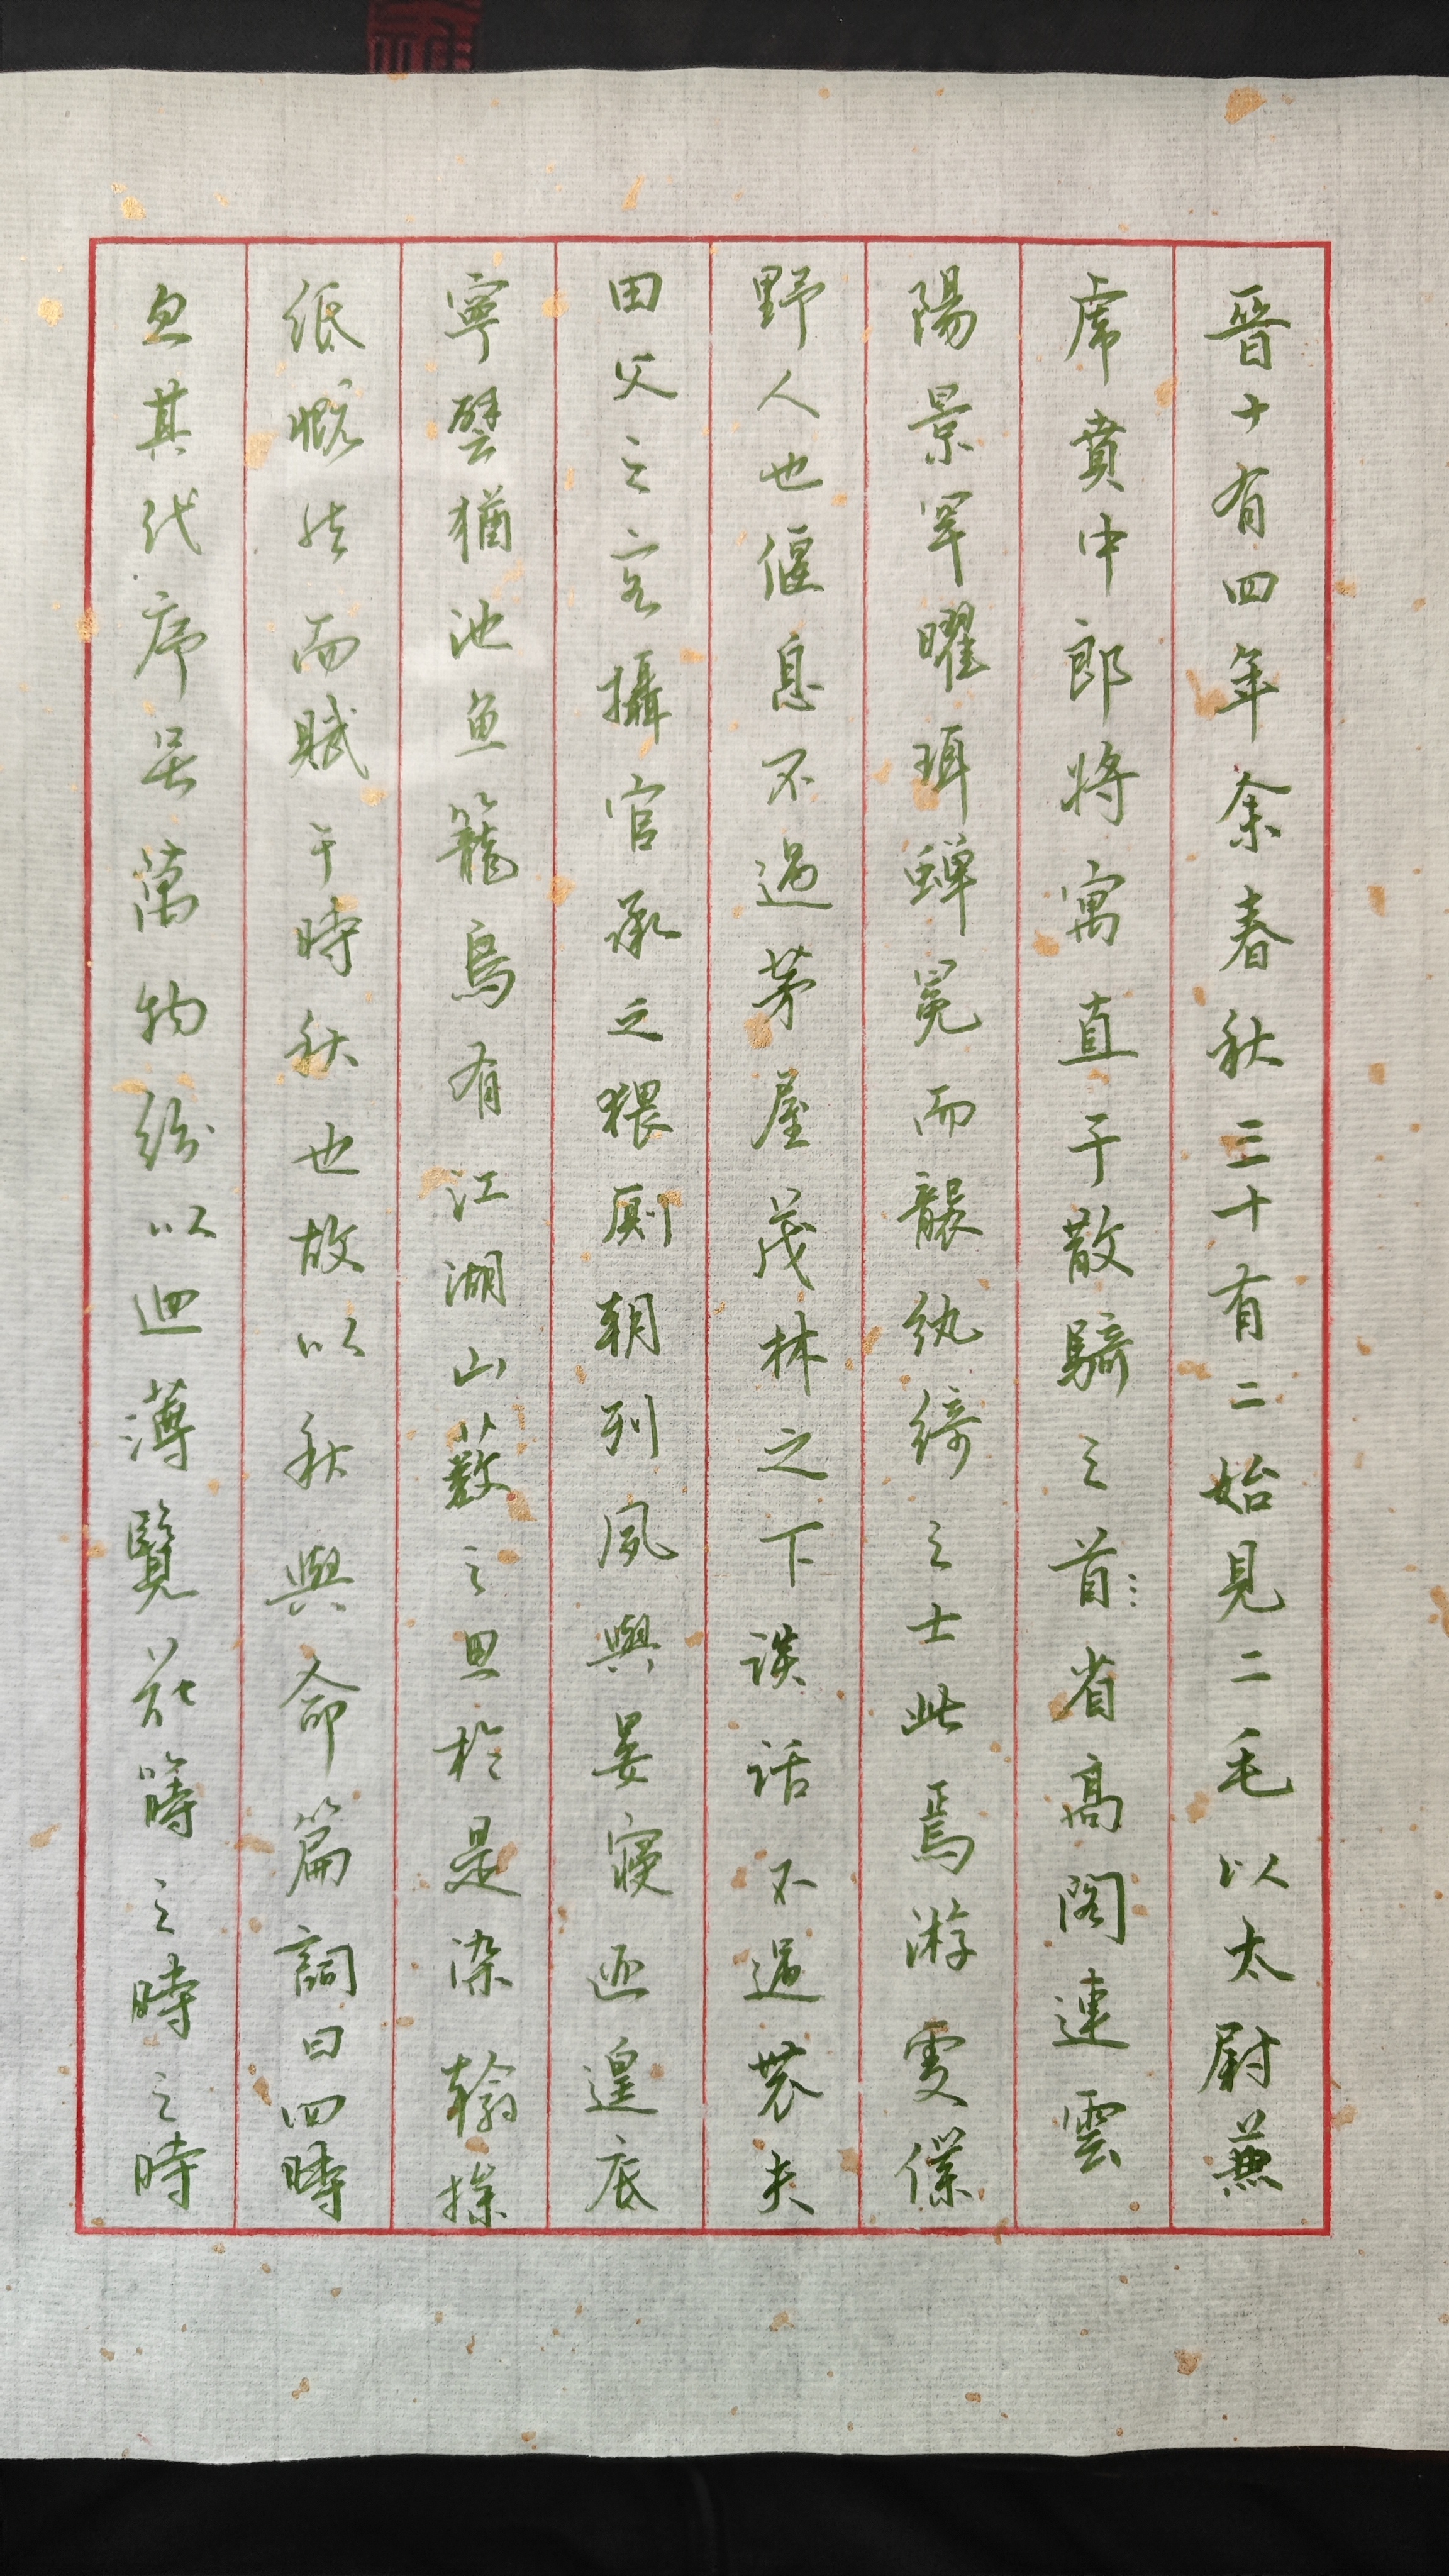 晉十有四年余春秋三十有二始見二毛以太尉兼
虎賁中郎將寓直于散騎之首省高閣連雲
陽景罕曜珥蟬冕而襲紈綺之士此焉游處僕
野人也偃息不過茅屋茂林之下談話不過農夫
田父之客攝官承之猥厠朝列夙興晏寢匪遑底
寧譬猶池魚籠鳥有江湖山藪之思於是染翰操
紙慨然而賦于時秋也故以秋興命篇詞曰四時
忽其代序兮萬物紛以迴薄覽花蒔之時之時